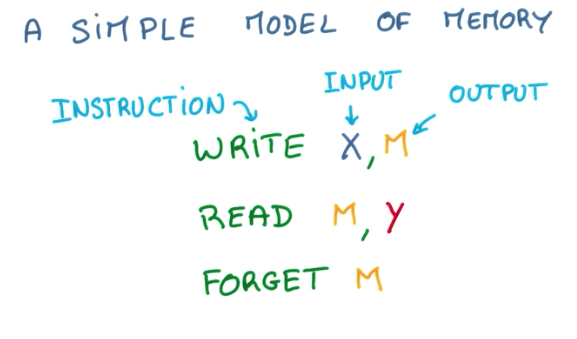 A SiMPLE MODEL OF MEMORY
INPUT
INSTRUCTiON OUTPUT
WRiTE X, M
READ M, Y
FORGET M